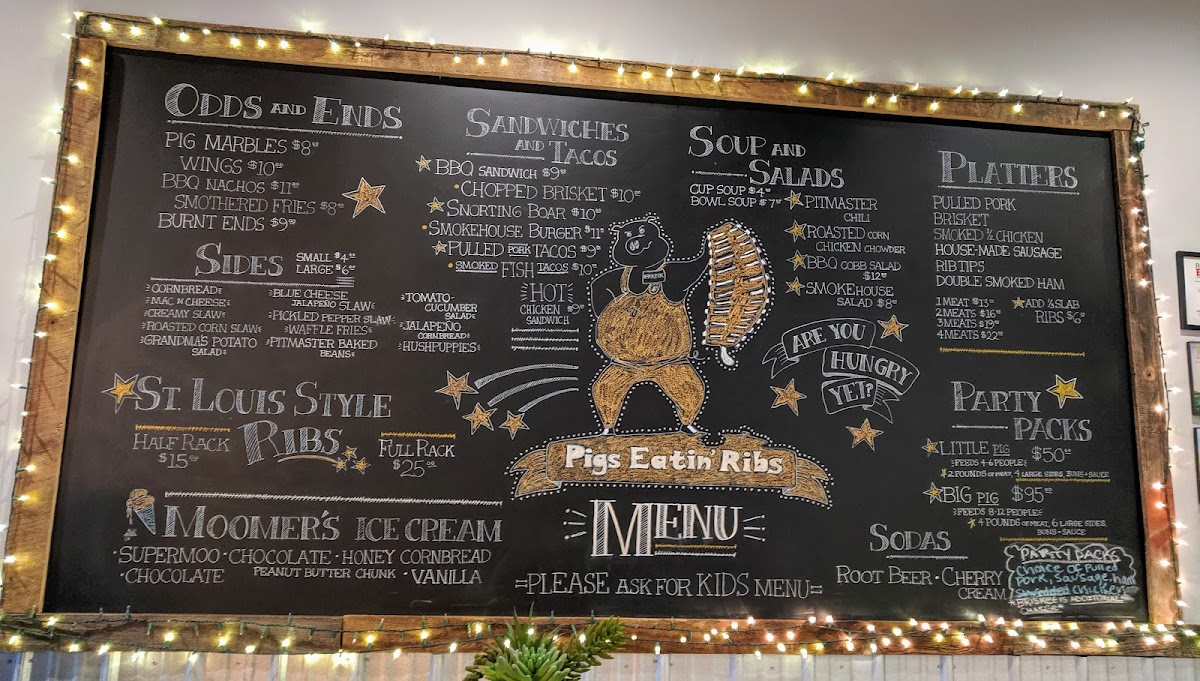 ODDS AND ENDS
PIG MARBLES $8⁰⁰
WINGS $10⁰⁰
BBQ NACHOS $11⁰⁰
SMOTHERED FRIES $8⁰⁰
BURNT ENDS $9⁰⁰
SIDES
SMALL $4⁰⁰
LARGE $6⁰⁰
CORNBREAD
MAC N CHEESE
CREAMY SLAW
ROASTED CORN SLAW
GRANDMA'S POTATO
SALAD
BLUE CHEESE
JALAPEÑO SLAW
PICKLED PEPPER SLAW
WAFFLE FRIES
PITMASTER BAKED
BEANS
TOMATO-
CUCUMBER
SALAD
JALAPEÑO
CORNBREAD
HUSHPUPPIES
ST. LOUIS STYLE
RIBS
HALF RACK
$15⁰⁰
FULL RACK
$25⁰⁰
MOOMER'S ICE CREAM
·SUPERMOO·CHOCOLATE·HONEY CORNBREAD
·CHOCOLATE PEANUT BUTTER CHUNK ·VANILLA
SANDWICHES
AND TACOS
BBQ SANDWICH $9⁰⁰
·CHOPPED BRISKET $10⁰⁰
SNORTING BOAR $10⁰⁰
·SMOKEHOUSE BURGER $11⁰⁰
PULLED PORK TACOS $9⁰⁰
·SMOKED FISH TACOS $10⁰⁰
HOT
CHICKEN $9⁰⁰
SANDWICH
Pigs Eatin' Ribs
MENU
=PLEASE ASK FOR KIDS MENU=
SOUP AND
SALADS
CUP SOUP $4⁰⁰
BOWL SOUP $7⁰⁰
PITMASTER
CHILI
ROASTED CORN
CHICKEN CHOWDER
BBQ COBB SALAD
$12⁰⁰
SMOKEHOUSE
SALAD $8⁰⁰
ARE YOU
HUNGRY
YET?
PLATTERS
PULLED PORK
BRISKET
SMOKED ¼ CHICKEN
HOUSE-MADE SAUSAGE
RIB TIPS
DOUBLE SMOKED HAM
1 MEAT $13⁰⁰
2 MEATS $16⁰⁰
3 MEATS $19⁰⁰
4 MEATS $22⁰⁰
ADD ¼ SLAB
RIBS $6⁰⁰
PARTY
PACKS
LITTLE PIG $50⁰⁰
FEEDS 4-6 PEOPLE
2 POUNDS OF MEAT, 4 LARGE SIDES, BUNS + SAUCE
BIG PIG $95⁰⁰
FEEDS 8-12 PEOPLE
4 POUNDS OF MEAT, 6 LARGE SIDES,
BUNS + SAUCE
SODAS
ROOT BEER · CHERRY
CREAM
PARTY PACKS
CHOICE OF Pulled
Pork, Sausage, ham
Shredded chicken
BRISKET IS ADDITIONAL
CHARGE